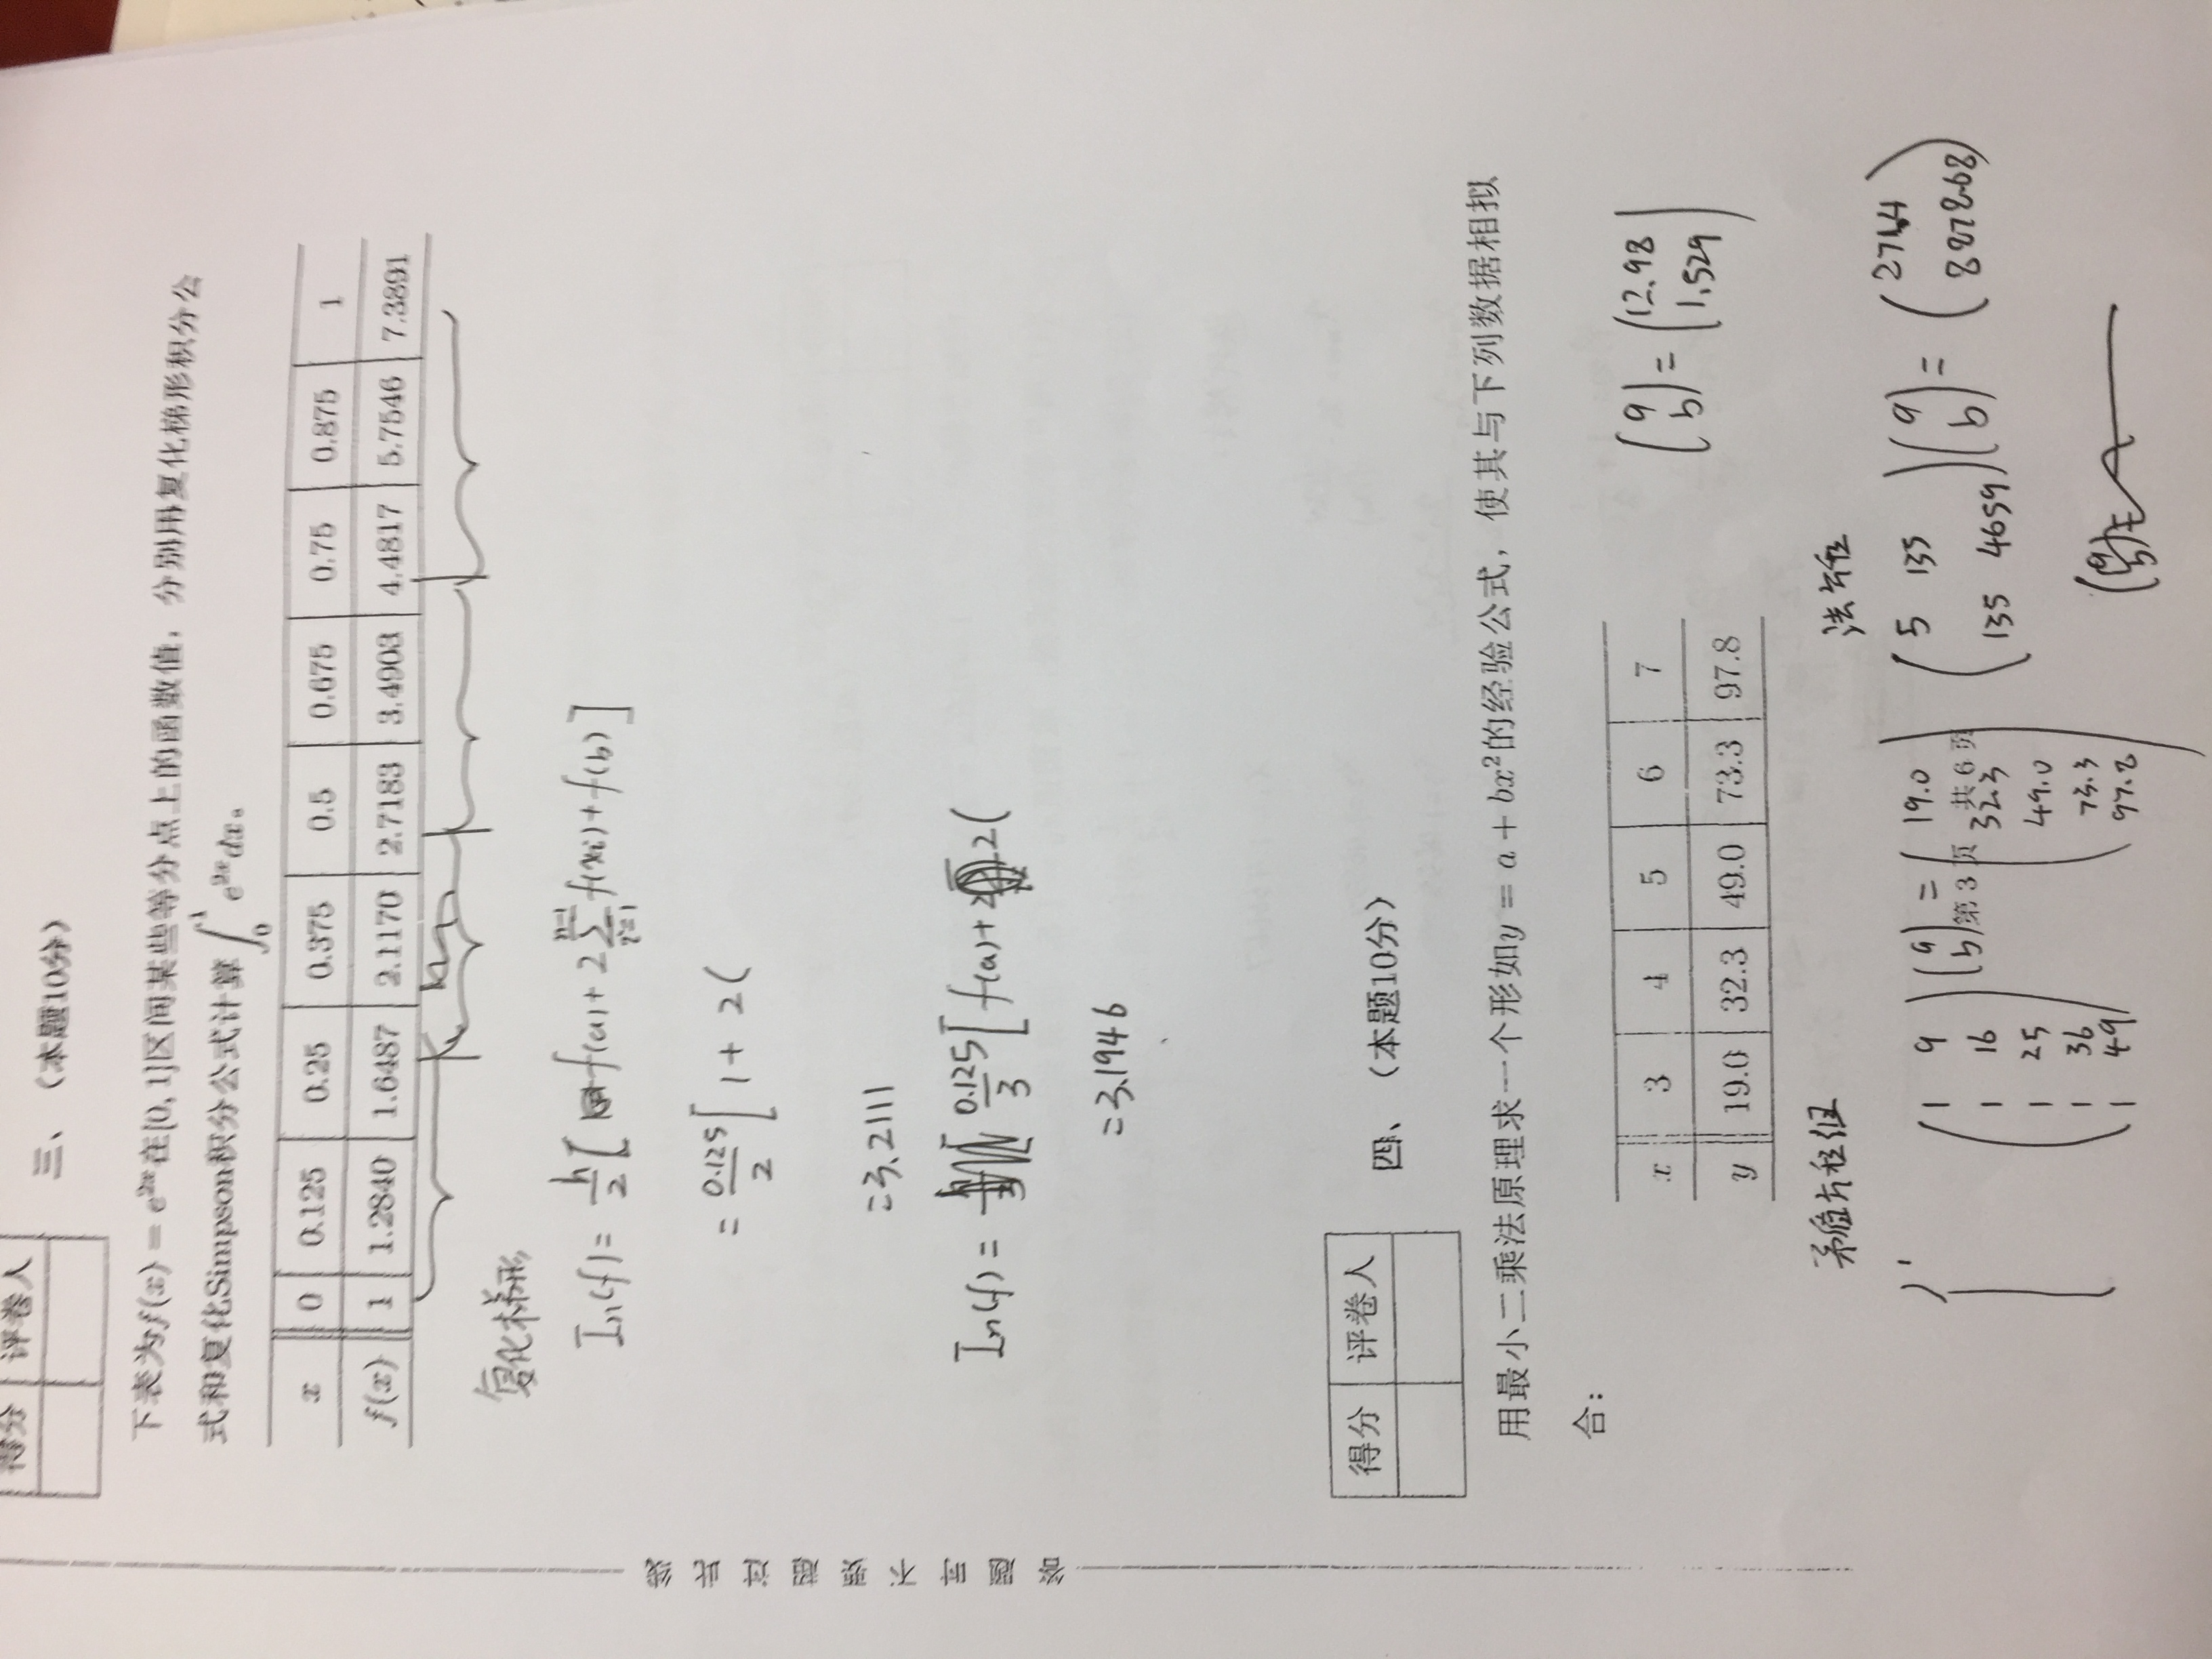 得分 评卷人
三、（本题10分）
下表为f(x) = e^{2x}在[0, 1]区间某些等分点上的函数值，分别用复化梯形积分公
式和复化Simpson积分公式计算∫_0^1 e^{2x}dx。
x 0 0.125 0.25 0.375 0.5 0.675 0.75 0.875 1
f(x) 1 1.2840 1.6487 2.1170 2.7183 3.4903 4.4817 5.7546 7.3891
复化梯形
In(f) = h/2 [ f(a) + 2 ∑_{i=1}^{n-1} f(xi) + f(b) ]
= 0.125/2 [ 1 + 2 (
= 3.2111
In(f) = 0.125/3 [ f(a) + 2 (
= 3.1946
答题时不要超过此线
得分 评卷人
四、（本题10分）
用最小二乘法原理求一个形如y = a + bx²的经验公式，使其与下列数据相拟
合：
x 3 4 5 6 7
y 19.0 32.3 49.0 73.3 97.8
(a b) = (12.98 1.529)
矛盾方程组
法方程
(1 9
1 16
1 25
1 36
1 49) (a b) = (19.0
32.3
49.0
73.3
97.8)
(5 135
135 4659) (a b) = (271.4
8278.68)
(a b) =
第 3 页 共 6 页